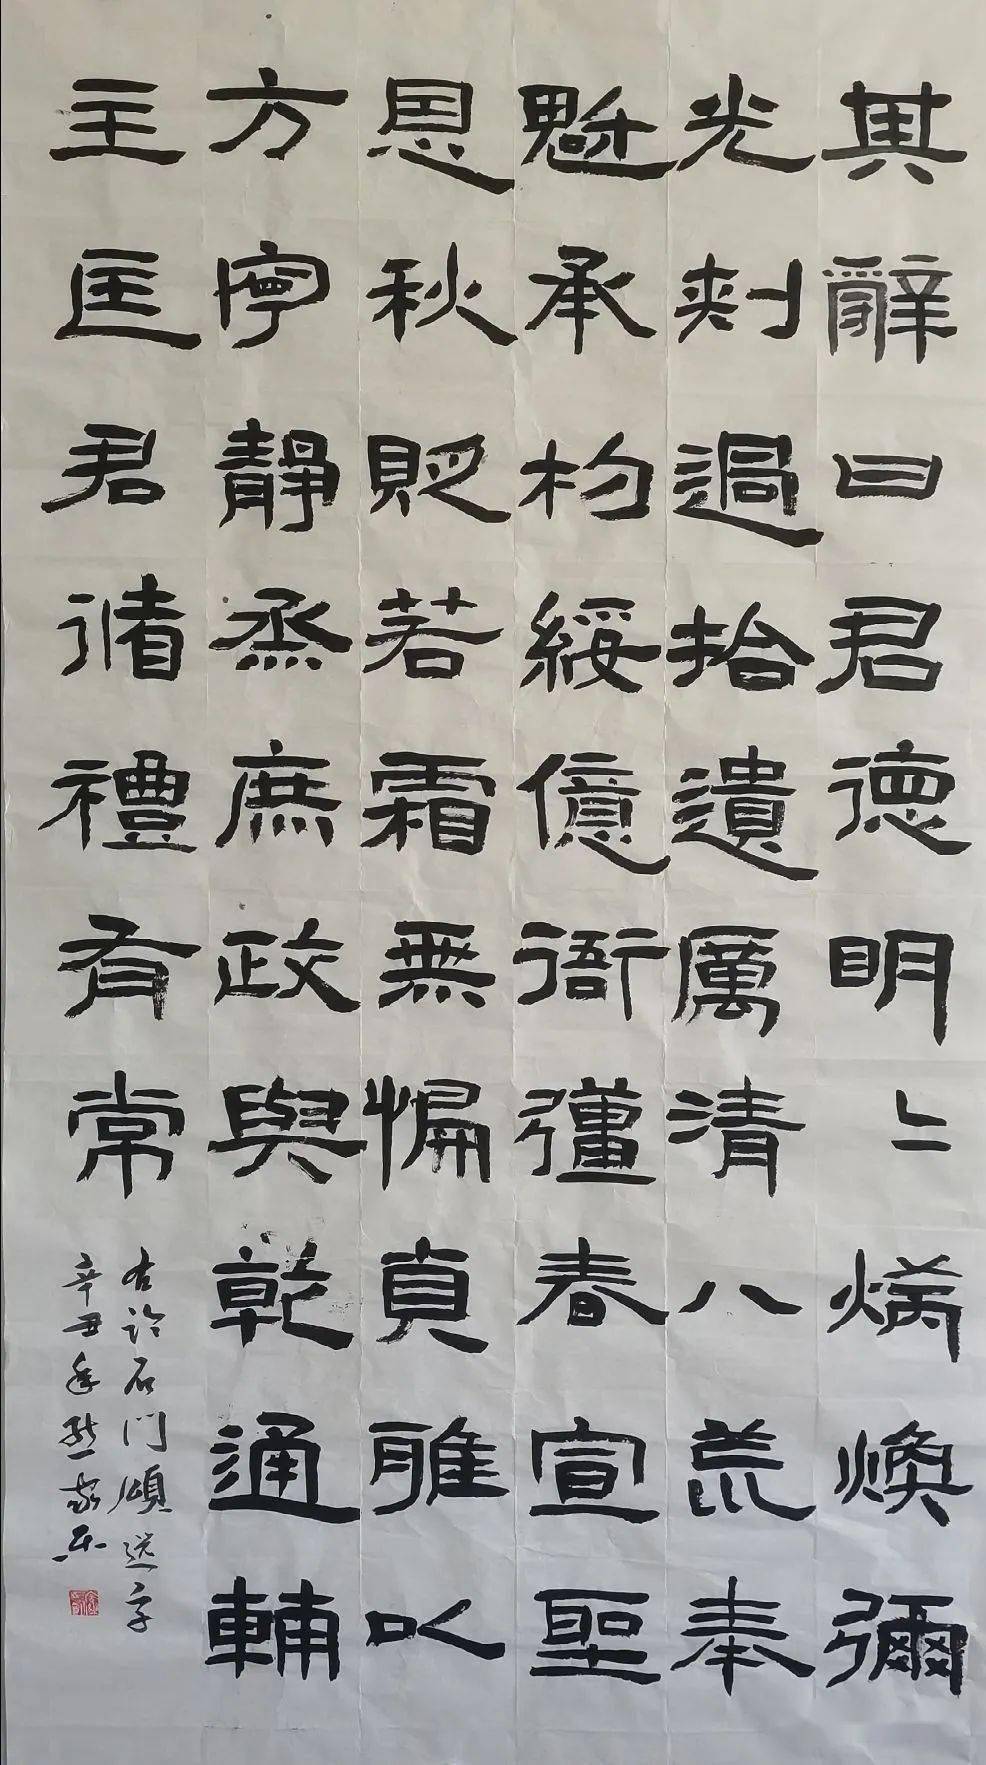 其辭曰君德明＝炳煥彌
光刺過拾遺厲清八荒奉
魁承杓綏億衙彊春宣聖
恩秋貶若霜無偏貞雅以
方寧靜烝庶政與乾通輔
主匡君循禮有常
右臨石門頌選字
辛丑年